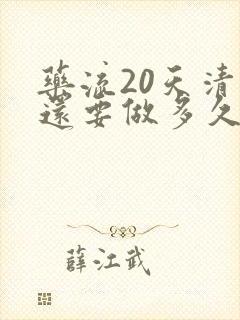 藥流20天清
還要做多久
薛江武